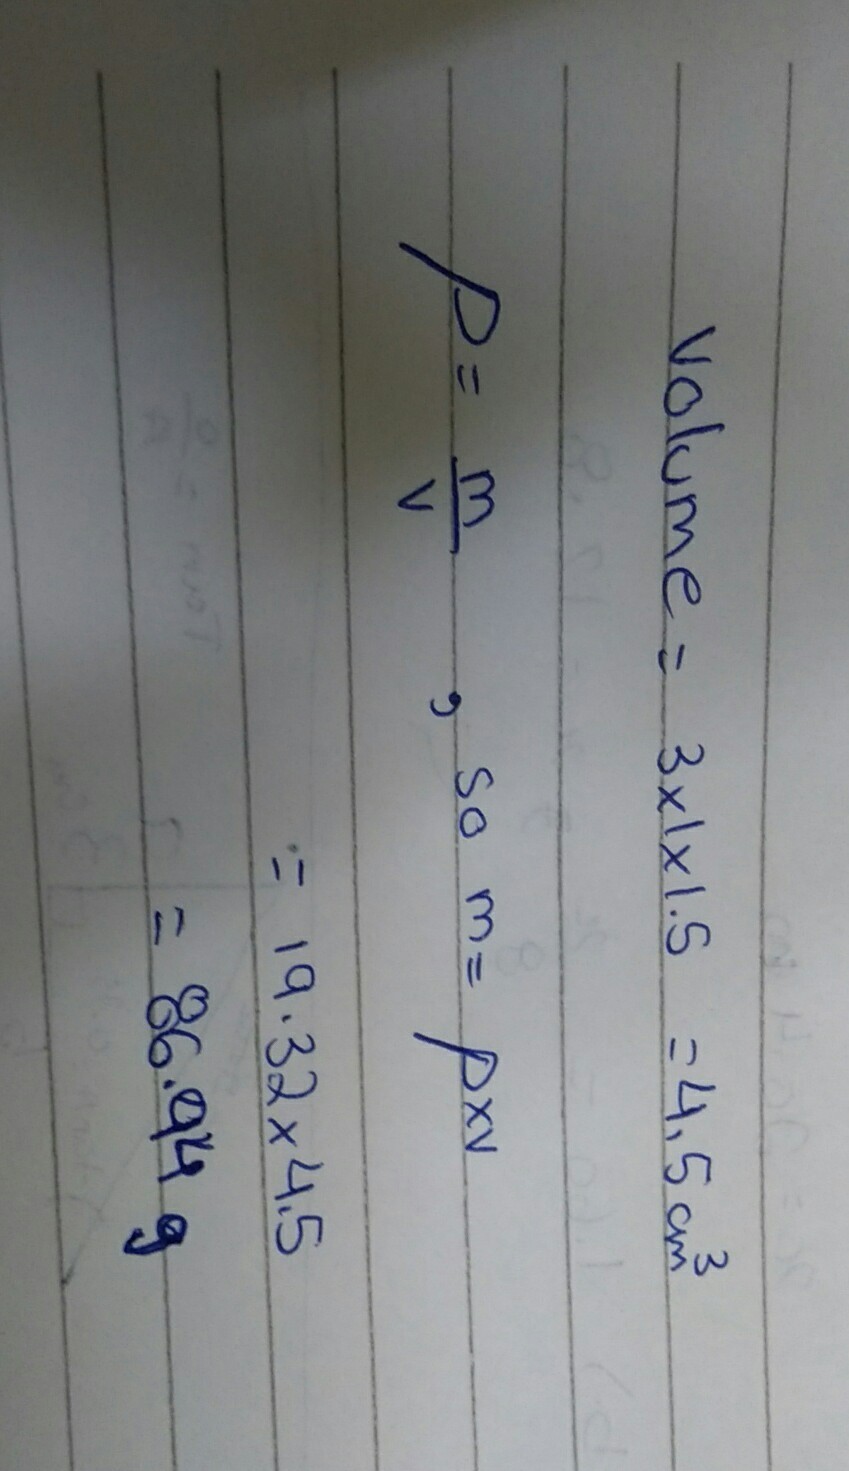 Volume = 3x1x1.5 = 4.5 cm³
ρ = m/v , so m = ρxv
= 19.32 x 4.5
= 86.94 g